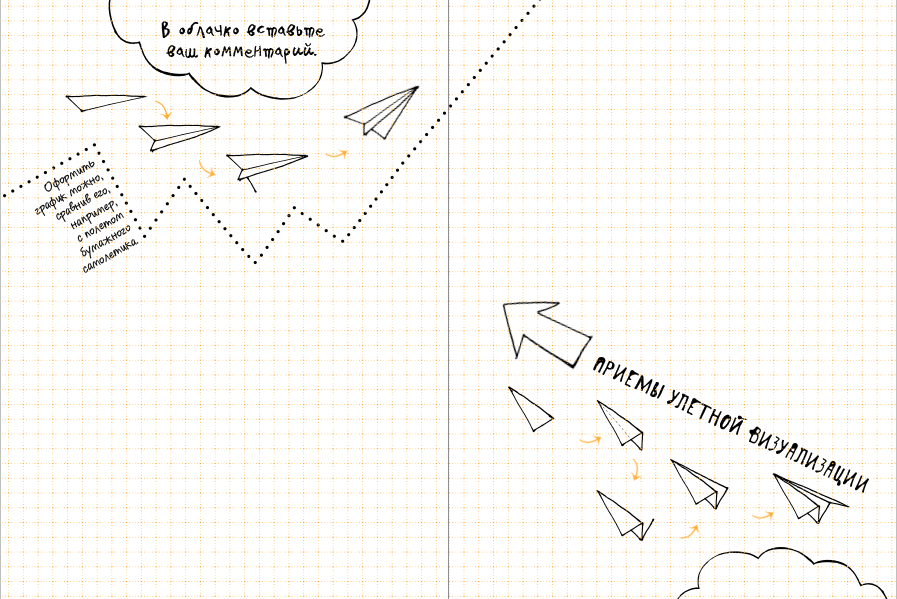 В облачко вставьте
ваш комментарий.
Оформить
график можно,
сравнив его,
например,
с полетом
бумажного
самолетика
ПРИЕМЫ УЛЕТНОЙ ВИЗУАЛИЗАЦИИ